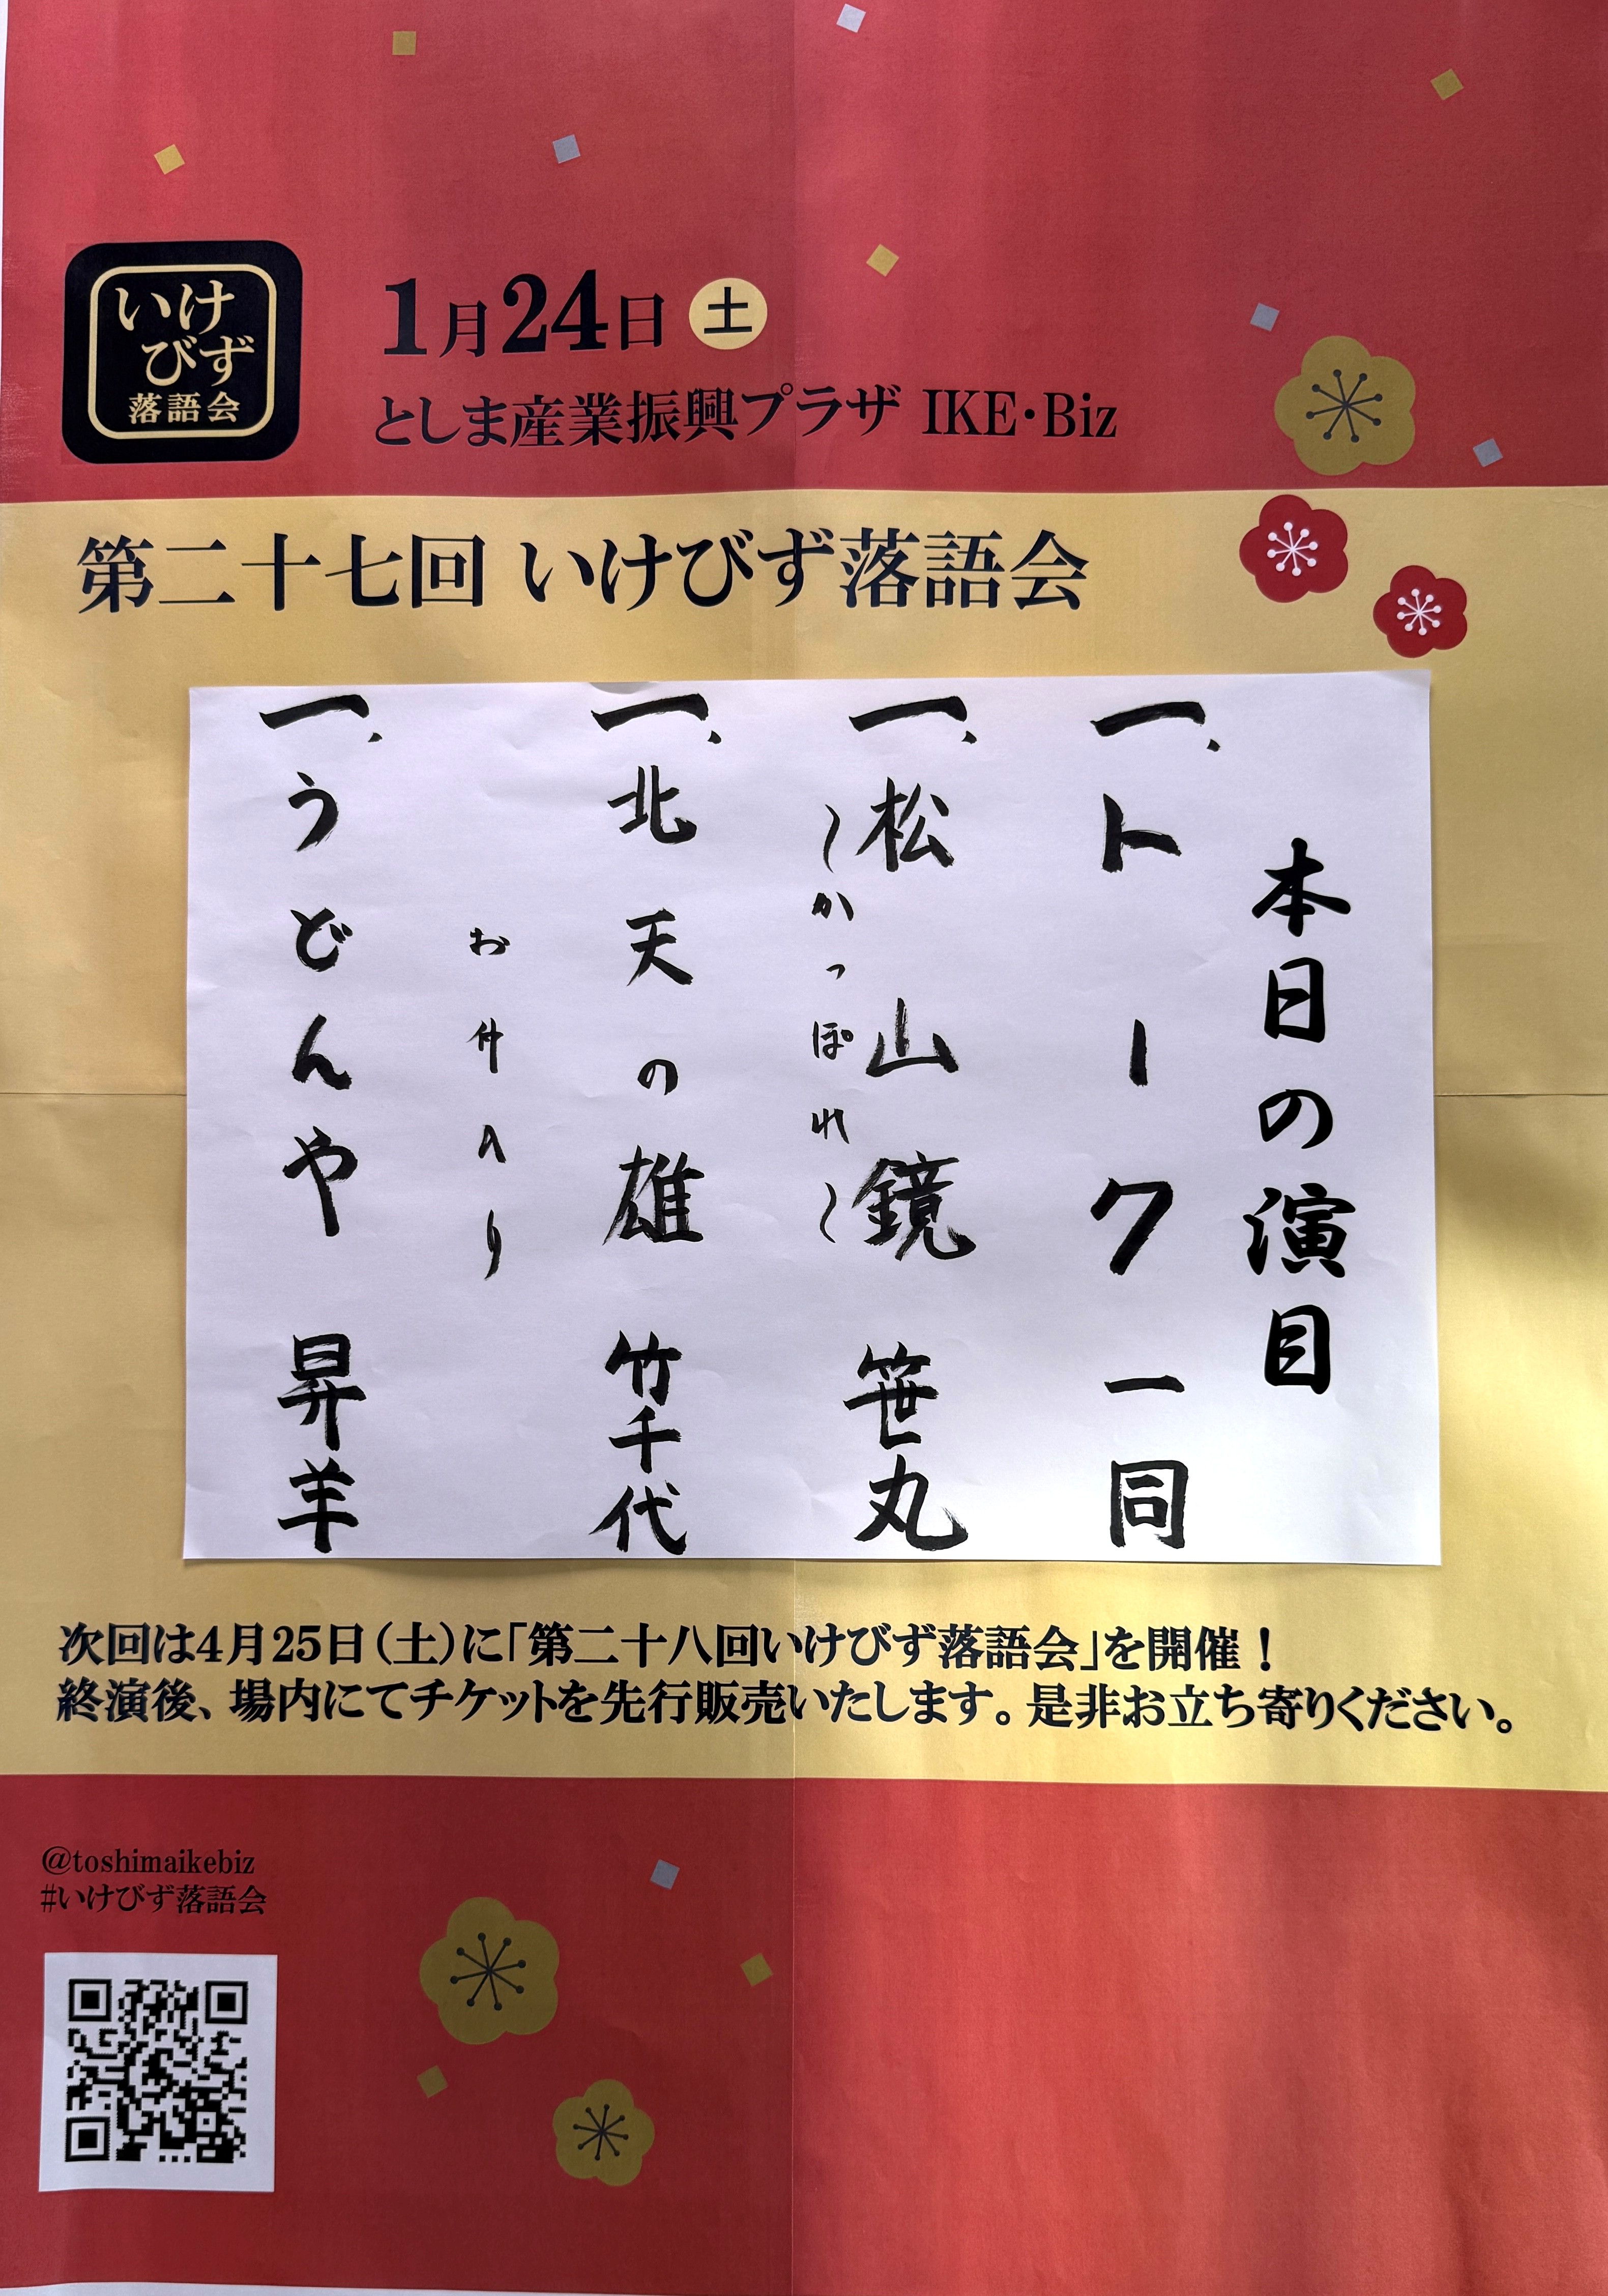 いけ
びず
落語会
1月24日 土
としま産業振興プラザ IKE・Biz
第二十七回 いけびず落語会
本日の演目
一、トーク 一同
一、松山鏡 笹丸
〜かっぽれ〜
一、北天の雄 竹千代
お仲入り
一、うどんや 昇羊
次回は4月25日(土)に「第二十八回いけびず落語会」を開催!
終演後、場内にてチケットを先行販売いたします。是非お立ち寄りください。
@toshimaikebiz
#いけびず落語会